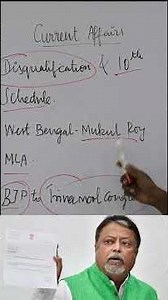 Current Affairs
Disqualification & 10th
Schedule.
West Bengal - Mukul Roy
MLA
BJP to Trinamool Congre